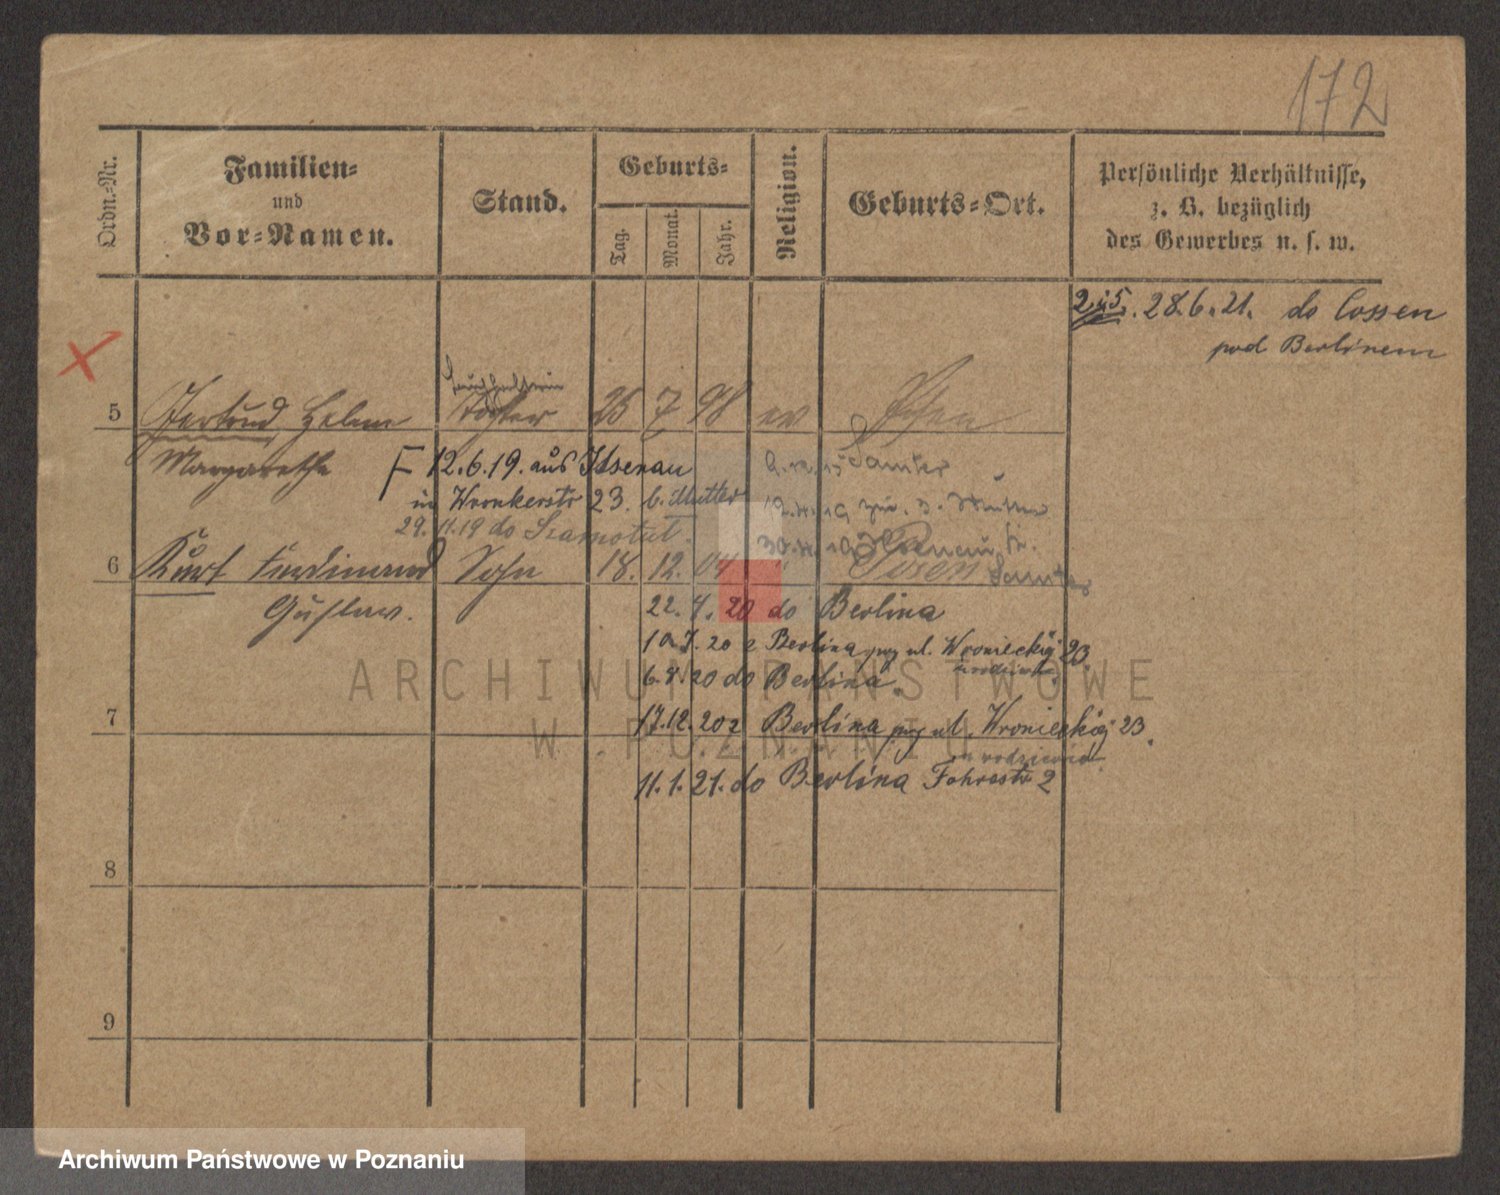 172
Ordn.-Nr.
Familien-
und
Vor-Namen.
Stand.
Geburts-
Tag.
Monat.
Jahr.
Religion.
Geburts-Ort.
Persönliche Verhältnisse,
z. B. bezüglich
des Gewerbes u. s. w.
2 i 5. 28.6.21. do Cossen
pod Berlinem
5 Gertrud Helene Tochter 26 7 98 ev Posen
Margarethe
12.6.19. aus Ilsenau
in Wronkerstr 23. b. Mutter
29.11.19 do Szamotuł.
Samter
19 zur. z. Mutter
6 Kurt Ferdinand Sohn 18. 12. 04 Posen
Samter
Gustav.
22.4.20 do Berlina
10.7.20 z Berlina przy ul. Wronieckiej 23
6.8.20 do Berlina.
17.12.20 z Berlina przy ul. Wronieckiej 23.
u rodziców
11.1.21. do Berlina Fohrestr 2
7
8
9
ARCHIWUM PAŃSTWOWE
W POZNANIU
Archiwum Państwowe w Poznaniu